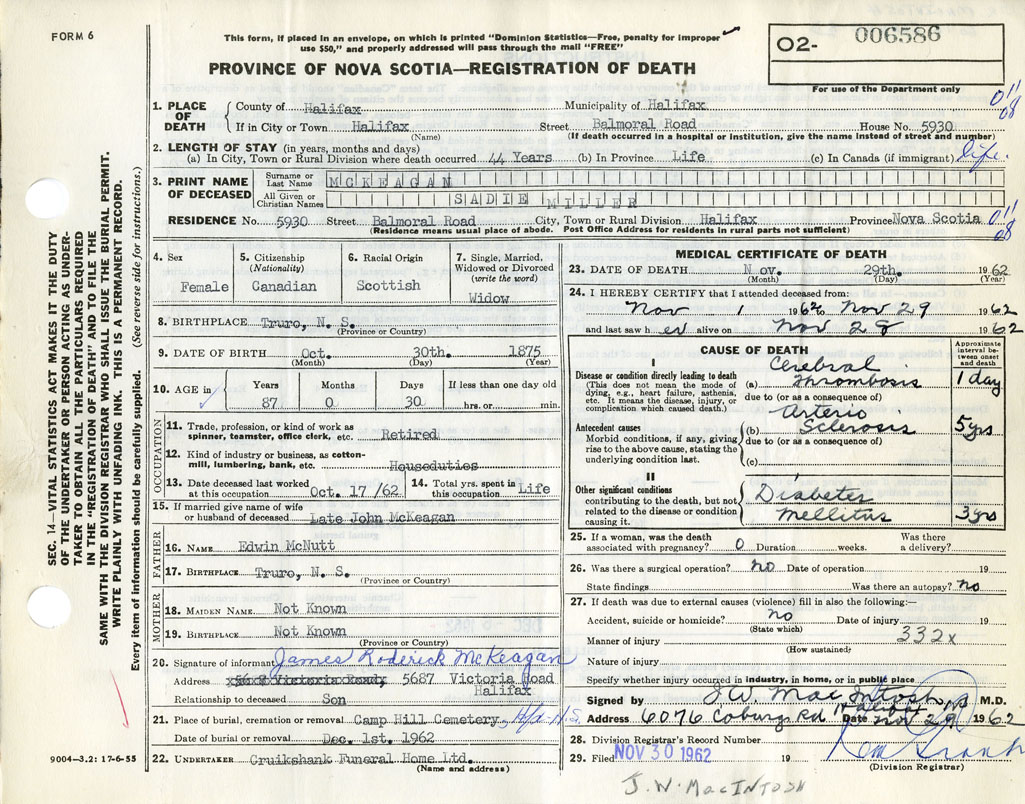 FORM 6
This form, if placed in an envelope, on which is printed "Dominion Statistics—Free, penalty for improper
use $50," and properly addressed will pass through the mail "FREE"
PROVINCE OF NOVA SCOTIA—REGISTRATION OF DEATH
O2- 006586
For use of the Department only
SEC. 14—VITAL STATISTICS ACT MAKES IT THE DUTY
OF THE UNDERTAKER OR PERSON ACTING AS UNDER-
TAKER TO OBTAIN ALL THE PARTICULARS REQUIRED
IN THE "REGISTRATION OF DEATH" AND TO FILE THE
SAME WITH THE DIVISION REGISTRAR WHO SHALL ISSUE THE BURIAL PERMIT.
WRITE PLAINLY WITH UNFADING INK. THIS IS A PERMANENT RECORD.
Every item of information should be carefully supplied. (See reverse side for instructions.)
1. PLACE OF DEATH
County of Halifax Municipality of Halifax 011
08
If in City or Town Halifax Street Balmoral Road House No. 5930
(Name) (If death occurred in a hospital or institution, give the name instead of street and number)
2. LENGTH OF STAY (in years, months and days)
(a) In City, Town or Rural Division where death occurred 44 Years (b) In Province Life (c) In Canada (if immigrant) life.
3. PRINT NAME OF DECEASED
Surname or Last Name MCKEAGAN
All Given or Christian Names SADIE MILLER
RESIDENCE No. 5930 Street Balmoral Road City, Town or Rural Division Halifax Province Nova Scotia 011
08
(Residence means usual place of abode. Post Office Address for residents in rural parts not sufficient)
4. Sex
Female
5. Citizenship
(Nationality)
Canadian
6. Racial Origin
Scottish
7. Single, Married, Widowed or Divorced
(write the word)
Widow
8. BIRTHPLACE Truro, N. S.
(Province or Country)
9. DATE OF BIRTH Oct. 30th. 1875
(Month) (Day) (Year)
10. AGE in Years Months Days If less than one day old
87 0 30 hrs. or min.
OCCUPATION
11. Trade, profession, or kind of work as
spinner, teamster, office clerk, etc. Retired
12. Kind of industry or business, as cotton-
mill, lumbering, bank, etc. Houseduties
13. Date deceased last worked
at this occupation Oct. 17/62
14. Total yrs. spent in
this occupation Life
15. If married give name of wife
or husband of deceased Late John McKeagan
FATHER
16. NAME Edwin McNutt
17. BIRTHPLACE Truro, N. S.
(Province or Country)
MOTHER
18. MAIDEN NAME Not Known
19. BIRTHPLACE Not Known
(Province or Country)
20. Signature of informant James Roderick McKeagan
Address 5687 Victoria Road
Halifax
Relationship to deceased Son
21. Place of burial, cremation or removal Camp Hill Cemetery, Hfx. N.S.
Date of burial or removal Dec. 1st. 1962
22. UNDERTAKER Cruikshank Funeral Home Ltd.
(Name and address)
9004—3.2: 17-6-55
MEDICAL CERTIFICATE OF DEATH
23. DATE OF DEATH Nov. 29th. 1962
(Month) (Day) (Year)
24. I HEREBY CERTIFY that I attended deceased from:
Nov 1 1962 to Nov 29 1962
and last saw her alive on Nov 28 1962
CAUSE OF DEATH
Approximate interval between onset and death
I
Disease or condition directly leading to death
(This does not mean the mode of
dying, e.g., heart failure, asthenia,
etc. It means the disease, injury, or
complication which caused death.)
(a) Cerebral Thrombosis 1 day
due to (or as a consequence of)
Antecedent causes
Morbid conditions, if any, giving
rise to the above cause, stating the
underlying condition last.
(b) Arterio Sclerosis 5 yrs
due to (or as a consequence of)
(c)
II
Other significant conditions
contributing to the death, but not
related to the disease or condition
causing it.
Diabetes
Mellitus 3 yrs
25. If a woman, was the death
associated with pregnancy? 0 Duration weeks. Was there a delivery?
26. Was there a surgical operation? no Date of operation 19
State findings Was there an autopsy? no
27. If death was due to external causes (violence) fill in also the following:—
Accident, suicide or homicide? no Date of injury 19
(State which)
Manner of injury 332x
(How sustained)
Nature of injury
Specify whether injury occurred in industry, in home, or in public place
Signed by J W. MacIntosh M.D.
Address 6076 Coburg Rd Halifax NS Date Nov 29 1962
28. Division Registrar's Record Number
29. Filed NOV 30 1962 19
(Division Registrar)
J. W. MACINTOSH